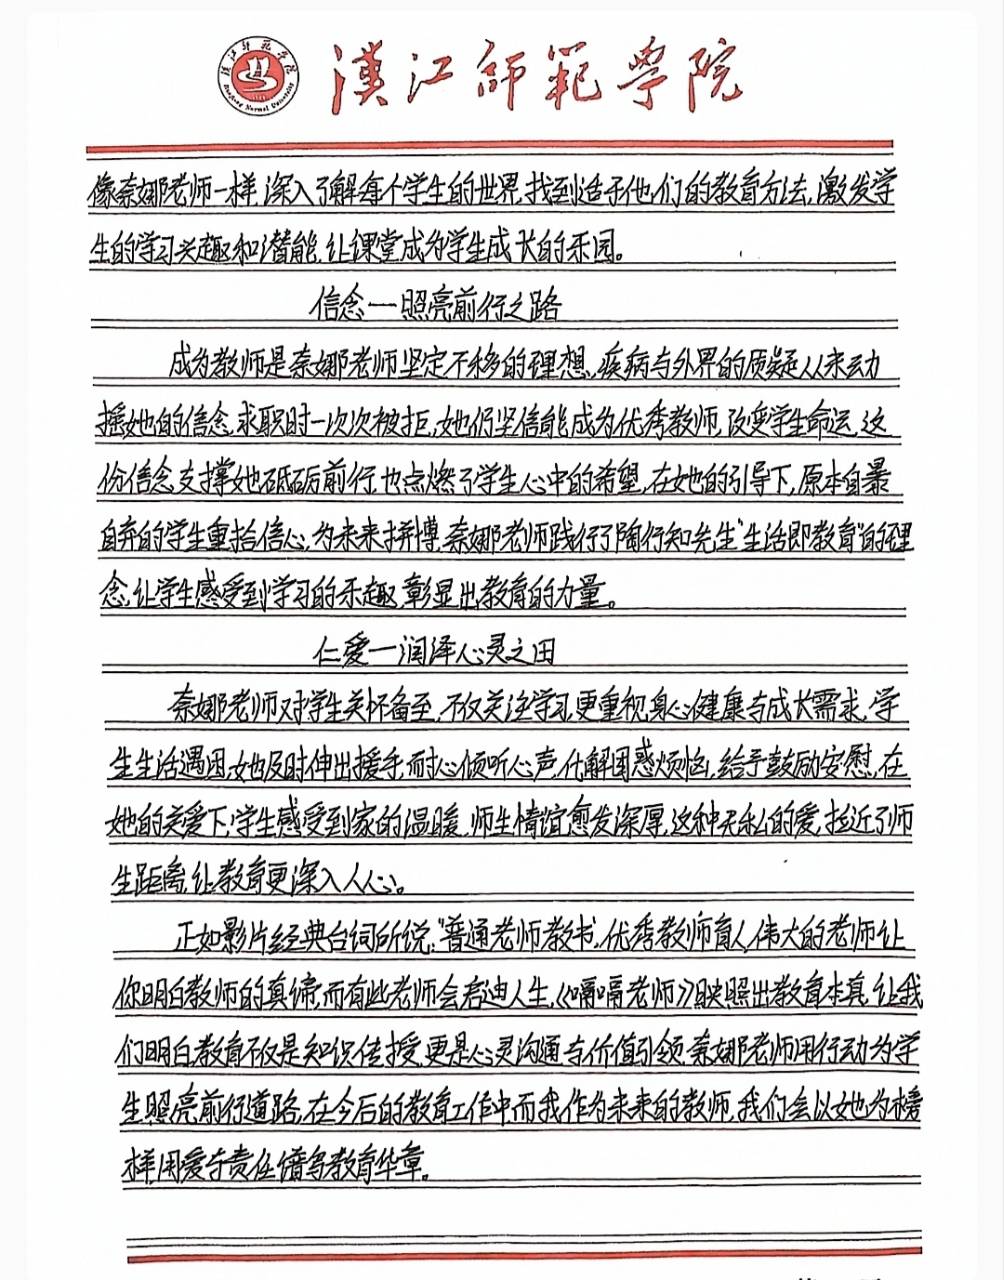 漢江師範學院
像奈娜老师一样,深入了解每个学生的世界,找到适于他们的教育方法,激发学
生的学习兴趣和潜能,让课堂成为学生成长的乐园。
信念一照亮前行之路
成为教师是奈娜老师坚定不移的理想,疾病与外界的质疑从未动
摇她的信念,求职时一次次被拒,她仍坚信能成为优秀教师,改变学生命运,这
份信念支撑她砥砺前行,也点燃了学生心中的希望,在她的引导下,原本自暴
自弃的学生重拾信心,为未来拼搏,奈娜老师践行了陶行知先生“生活即教育”的理
念,让学生感受到学习的乐趣,彰显出教育的力量。
仁爱一润泽心灵之田
奈娜老师对学生关怀备至,不仅关注学习,更重视身心健康与成长需求,学
生生活遇困,她及时伸出援手,耐心倾听心声,化解困惑烦恼,给予鼓励安慰,在
她的关爱下,学生感受到家的温暖,师生情谊愈发深厚,这种无私的爱,拉近了师
生距离,让教育更深入人心。
正如影片经典台词所说,“普通老师教书,优秀教师育人,伟大的老师让
你明白教师的真谛,而有些老师会启迪人生,《嗝嗝老师》映照出教育本真,让我
们明白教育不仅是知识传授,更是心灵沟通与价值引领,奈娜老师用行动为学
生照亮前行道路,在今后的教育工作中,而我作为未来的教师,我们会以她为榜
样,用爱与责任谱写教育华章。